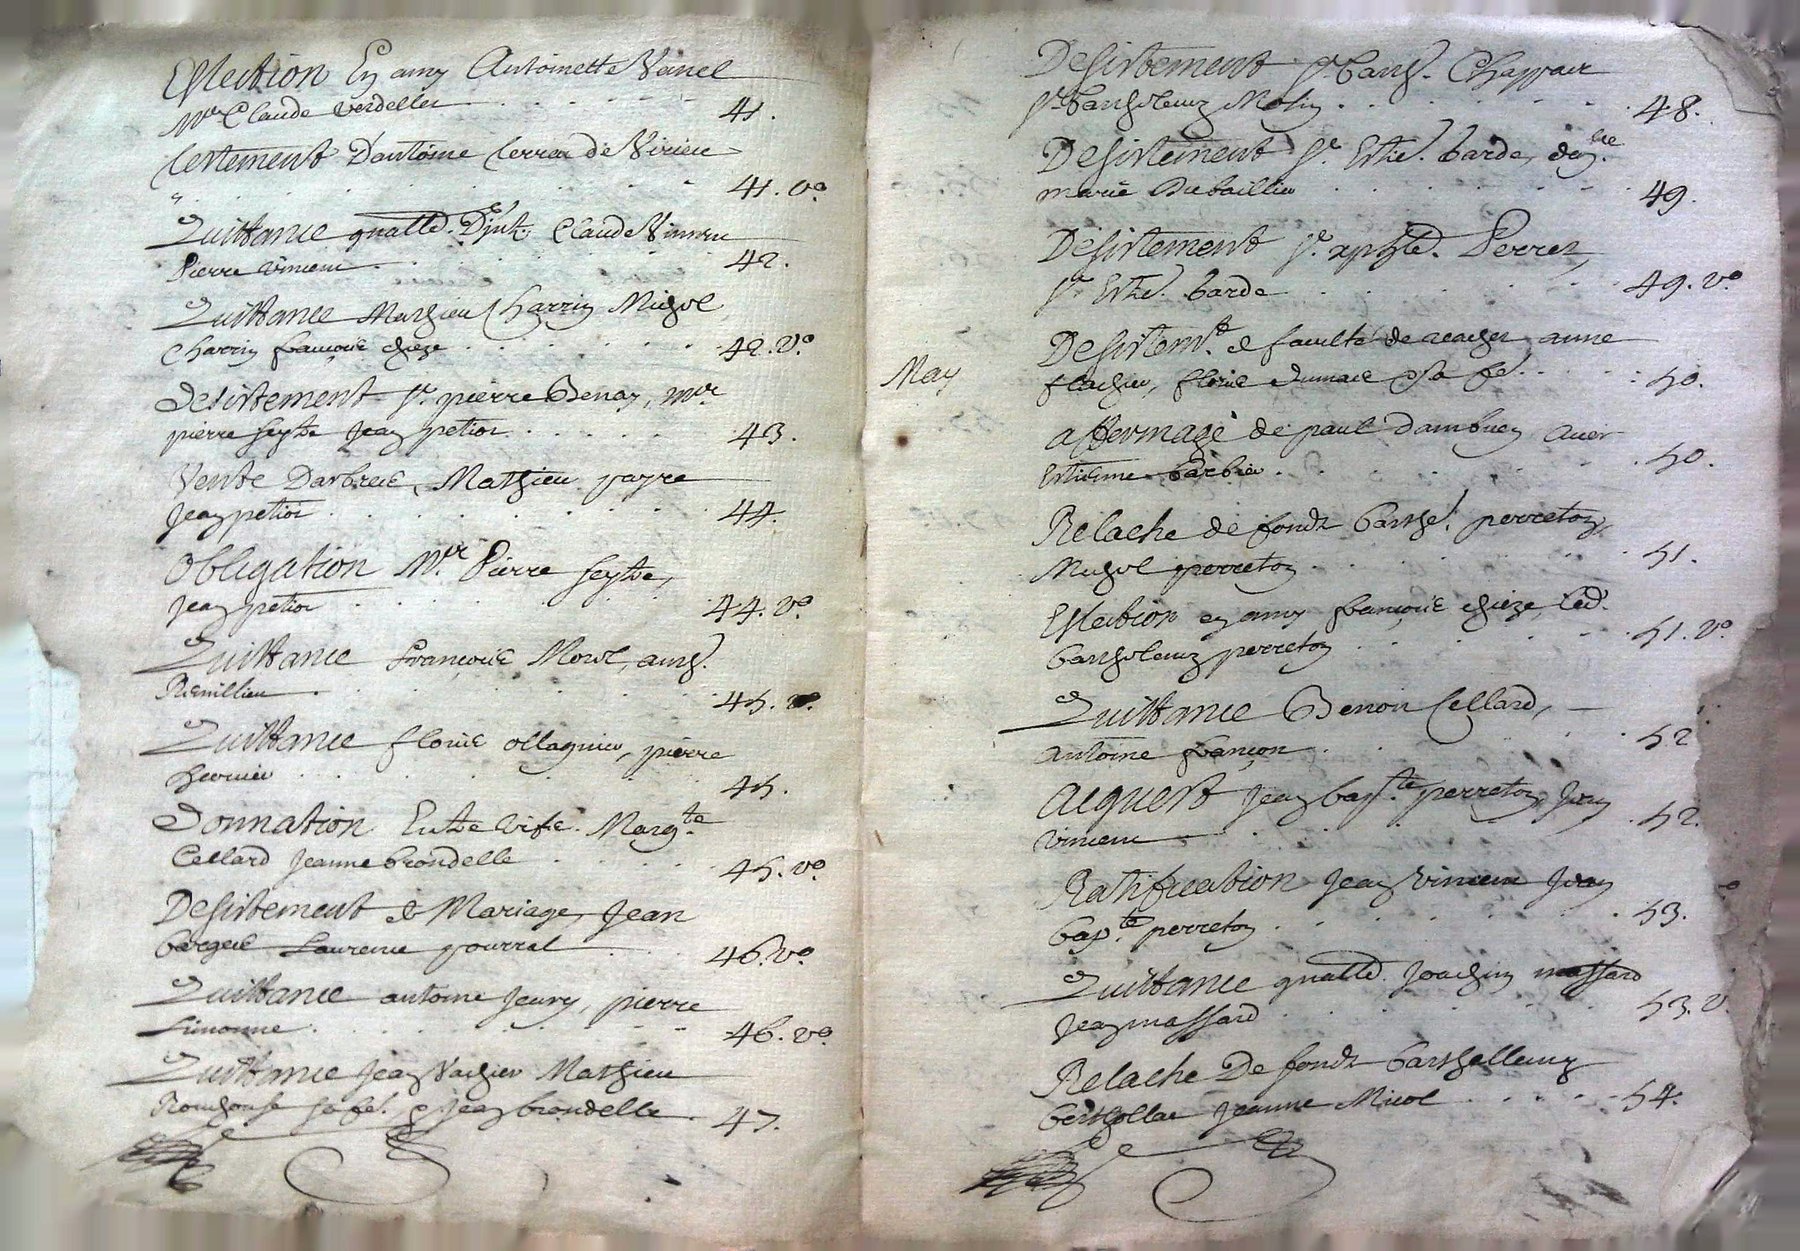 Eslection En amy Antoinette Vanel
Mre Claude Verdellet 41.
Testement D'antoine Terra de Virieu
41. vo.
Quittance quatted. Djnt. Claude Vincen
Pierre Vincent 42.
Quittance Mathieu Charrin Michel
Charrin françoise chieze 42. Vo.
Desistement Sr. pierre Benay, mre
pierre seytre Jean petior 43.
Vente Darbres, Mathieu payre
Jean petior 44.
Obligation Mr. Pierre seytre,
Jean petior 44. Vo.
Quittance françoise Morel, anth.
Remillieu 45. v.
Quittance florie ollagnier, pierre
fournier 45.
Donnation Entre vifs. Margte.
Cellard Jeanne brondelle 45. Vo.
Desistement de Mariage, Jean
bergere Laurence pourrat 46. Vo.
Quittance antoine Jeury, pierre
Limonne 46. Vo.
Quittance Jean Vacher Mathieu
sa fe. & Jean brondelle 47.
Desistement Sr. barth. Chappair
Sr. bartholemy Molin 48.
Desistement Sr. Estne. barde, dlle.
marie Dubaillieu 49.
Desistement Sr. xphle. Perret,
Sr. Estne. barde 49. Vo.
May
Desistemt. de faculté de racher anne
flachier, florie dumace & sa fe. 50.
affermage de paul dambuen avec
Estienne barbier 50.
Relache de fondz barthe. perreton,
Michel perreton 51.
Eslection en amy françoise chieze, Led.
bartholemy perreton 51. Vo.
Quittance Benoit Cellard,
antoine françon 52
acquest Jean bapte. perreton, Jean
vincent 52.
Rathification Jean Vincent Jean
bapte. perreton 53.
Quittance quatted. Joachim massard
Jean massard 53. V.
Relache De fondz barthellemy
berthollat Jeanne Micol 54.